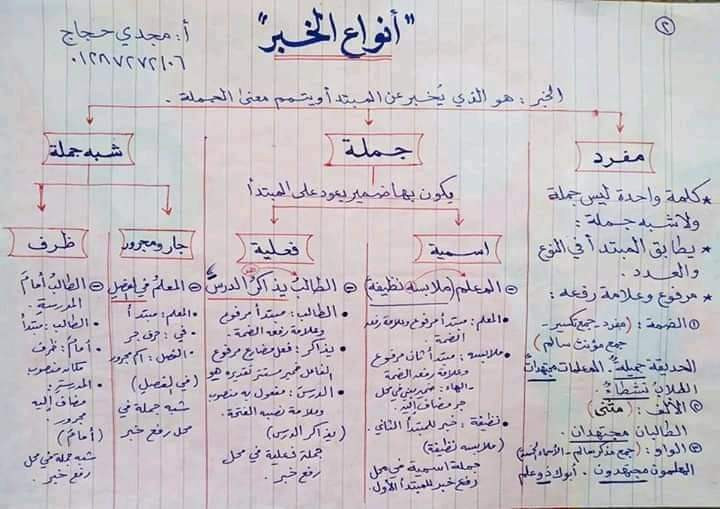 ٢
"أنواع الخبر"
أ: مجدي حجاج
٠١٢٨٧٢٧٢١٠٦
الخبر : هو الذي يُخبر عن المبتدأ ويتمم معنى الجملة .
مفرد
★ كلمة واحدة ليس جملة
ولا شبه جملة :
★ يطابق المبتدأ في النوع
والعدد .
★ مرفوع وعلامة رفعه :
① الضمة : (مفرد - جمع تكسير -
جمع مؤنث سالم)
الحديقة جميلةٌ . المعلمات مجتهداتٌ
الطلابُ نشطاءٌ .
② الألف : (مثنى)
الطالبان مجتهدان .
③ الواو : (جمع مذكر سالم - الأسماء الخمسة)
المعلمون مجتهدون . أبوك ذو علم
جملة
يكون بها ضمير يعود على المبتدأ
اسمية
المعلم (ملابسه نظيفة)
• المعلم : مبتدأ مرفوع وعلامة رفعه
الضمة .
• ملابسه : مبتدأ ثان مرفوع
وعلامة رفعه الضمة
- الهاء : ضمير مبني في محل
جر مضاف إليه .
• نظيفة : خبر للمبتدأ الثاني .
(ملابسه نظيفة)
جملة اسمية في محل
رفع خبر للمبتدأ الأول .
فعلية
الطالبُ يذاكرُ الدرسَ
• الطالب : مبتدأ مرفوع
وعلامة رفعه الضمة .
• يذاكر : فعل مضارع مرفوع
الفاعل ضمير مستتر تقديره هو
• الدرس : مفعول به منصوب
وعلامة نصبه الفتحة .
(يذاكر الدرس)
جملة فعلية في محل
رفع خبر .
شبه جملة
جار ومجرور
المعلمُ في الفصلِ
• المعلم : مبتدأ
• في : حرف جر
• الفصل : اسم مجرور
(في الفصل)
شبه جملة في
محل رفع خبر
ظرف
الطالبُ أمامَ
المدرسةِ .
• الطالب : مبتدأ
• أمامَ : ظرف
مكان منصوب
• المدرسة :
مضاف إليه
مجرور .
(أمام)
شبه جملة في محل
رفع خبر .